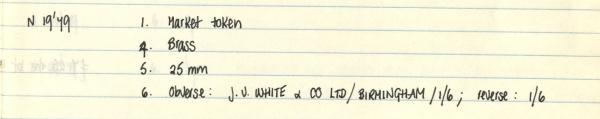 N 19'49 1. Market token
4. Brass
5. 25 mm
6. Obverse: J.V. WHITE & CO LTD/BIRMINGHAM/1/6; reverse: 1/6